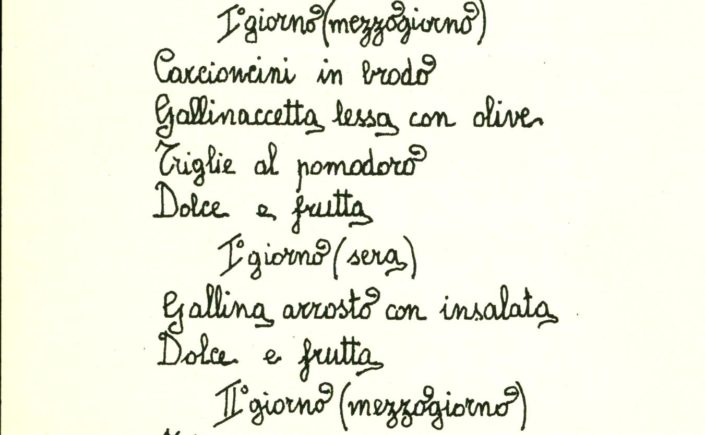 I° giorno (mezzogiorno)
Carcioncini in brodo
Gallinaccetta lessa con olive
Triglie al pomodoro
Dolce e frutta
I° giorno (sera)
Gallina arrosto con insalata
Dolce e frutta
II° giorno (mezzogiorno)